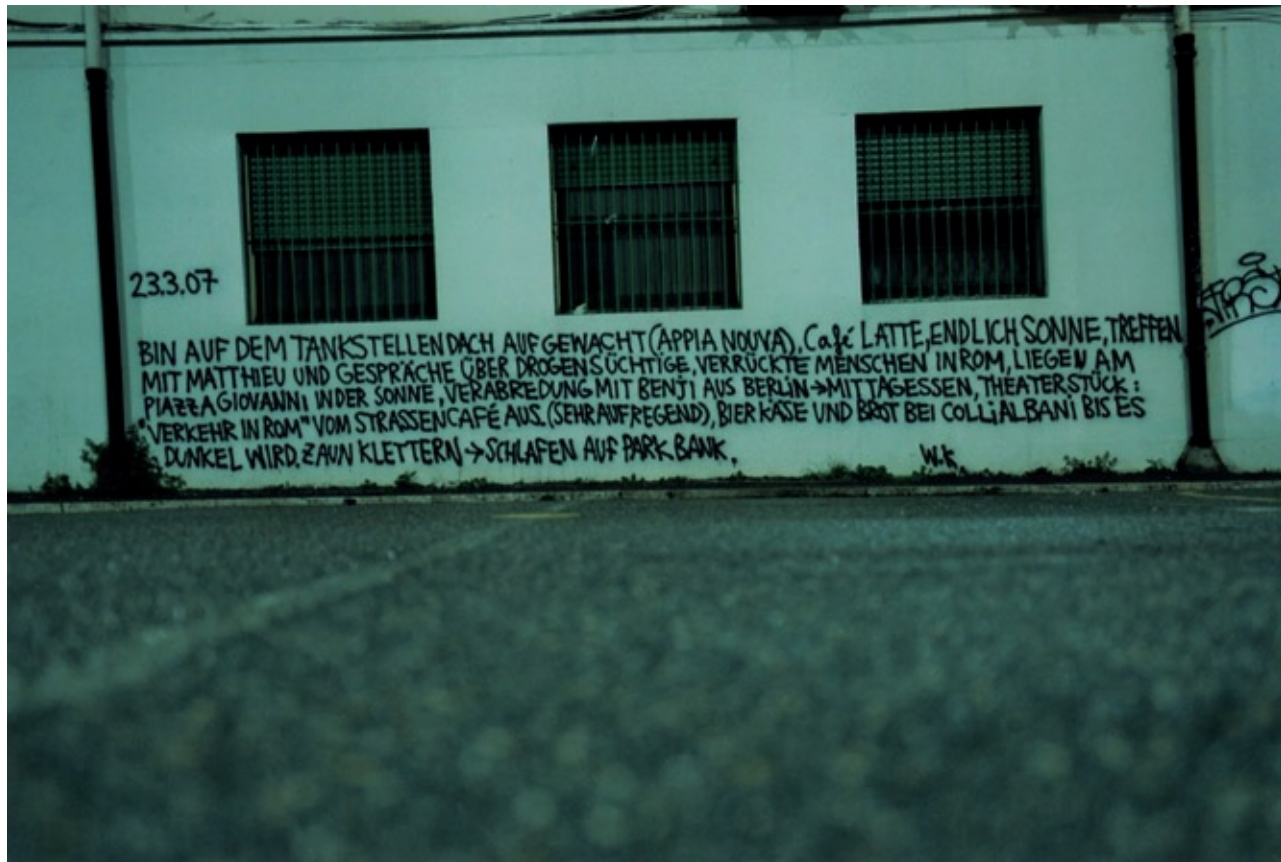 23.3.07
BIN AUF DEM TANKSTELLENDACH AUFGEWACHT (APPIA NOUVA), Café LATTE, ENDLICH SONNE, TREFFEN
MIT MATTHIEU UND GESPRÄCHE ÜBER DROGENSÜCHTIGE, VERRÜCKTE MENSCHEN IN ROM, LIEGEN AM
PIAZZA GIOVANNI IN DER SONNE, VERABREDUNG MIT BENJI AUS BERLIN→MITTAGESSEN, THEATERSTÜCK:
"VERKEHR IN ROM" VOM STRASSENCAFÉ AUS. (SEHR AUFREGEND), BIER KÄSE UND BROT BEI COLLIALBANI BIS ES
DUNKEL WIRD. ZAUN KLETTERN→SCHLAFEN AUF PARK BANK.
W.K.